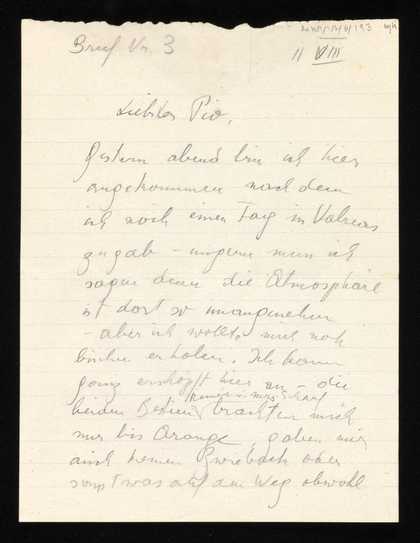 Brief Nr. 3
11 VIII
Liebster Pio,
Gestern abend bin ich hier
angekommen nach dem
ich noch einen Tag in Valreas
zugab - ungern muss ich
sagen denn die Atmosphäre
ist dort so unangenehm
- aber ich wollte mich noch
bischen erholen. Ich kam
ganz erschöpft hier an - die
beiden brachten mich
nur bis Orange, gaben mir
auch keinen Zwieback oder
sonst was auf den Weg obwohl